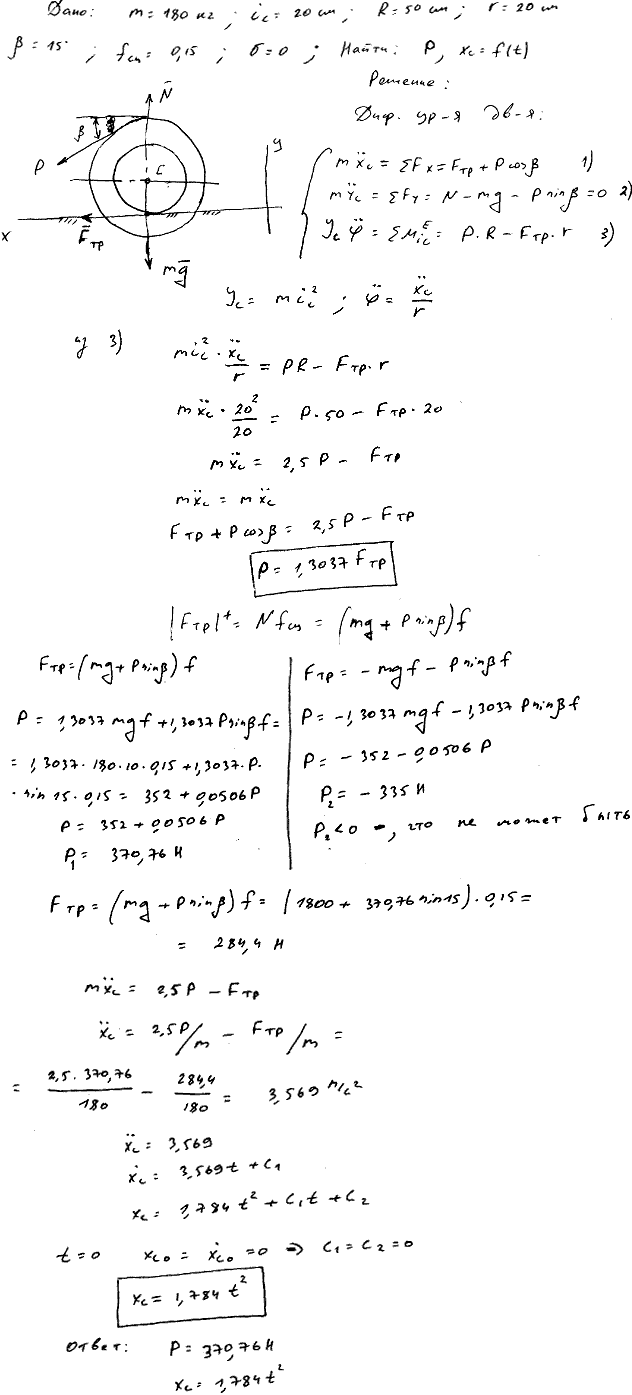 Дано: m = 180 кг ; i_c = 20 см ; R = 50 см ; r = 20 см
β = 15° ; f_сц = 0,15 ; σ = 0 ; Найти: P, x_c = f(t)
Решение:
Диф. ур-я дв-я:
N̄
β
P
C
y
x
F̄тр
mḡ
mẍ_c = ΣFx = Fтр + P cos β 1)
mÿ_c = ΣFy = N − mg − P sin β = 0 2)
J_c φ̈ = ΣM_ic^E = P·R − Fтр·r 3)
J_c = m i_c² ; φ̈ = ẍ_c/r
из 3) m i_c² · ẍ_c/r = PR − Fтр·r
mẍ_c · 20²/20 = P·50 − Fтр·20
mẍ_c = 2,5P − Fтр
mẍ_c = mẍ_c
Fтр + P cos β = 2,5P − Fтр
P = 1,3037 Fтр
|Fтр|⁺ = N f_сц = (mg + P sin β) f
Fтр = (mg + P sin β) f
P = 1,3037 mg f + 1,3037 P sin β f =
= 1,3037·180·10·0,15 + 1,3037·P·
· sin 15·0,15 = 352 + 0,0506P
P = 352 + 0,0506P
P₁ = 370,76 Н
Fтр = −mg f − P sin β f
P = −1,3037 mg f − 1,3037 P sin β f
P = −352 − 0,0506 P
P₂ = −335 Н
P₂ < 0 −, что не может быть
Fтр = (mg + P sin β) f = (1800 + 370,76 sin 15)·0,15 =
= 284,4 Н
mẍ_c = 2,5P − Fтр
ẍ_c = 2,5P/m − Fтр/m =
= 2,5·370,76/180 − 284,4/180 = 3,569 м/с²
ẍ_c = 3,569
ẋ_c = 3,569t + C₁
x_c = 1,784 t² + C₁t + C₂
t = 0 x_c0 = ẋ_c0 = 0 ⇒ C₁ = C₂ = 0
x_c = 1,784 t²
Ответ: P = 370,76Н
x_c = 1,784t²